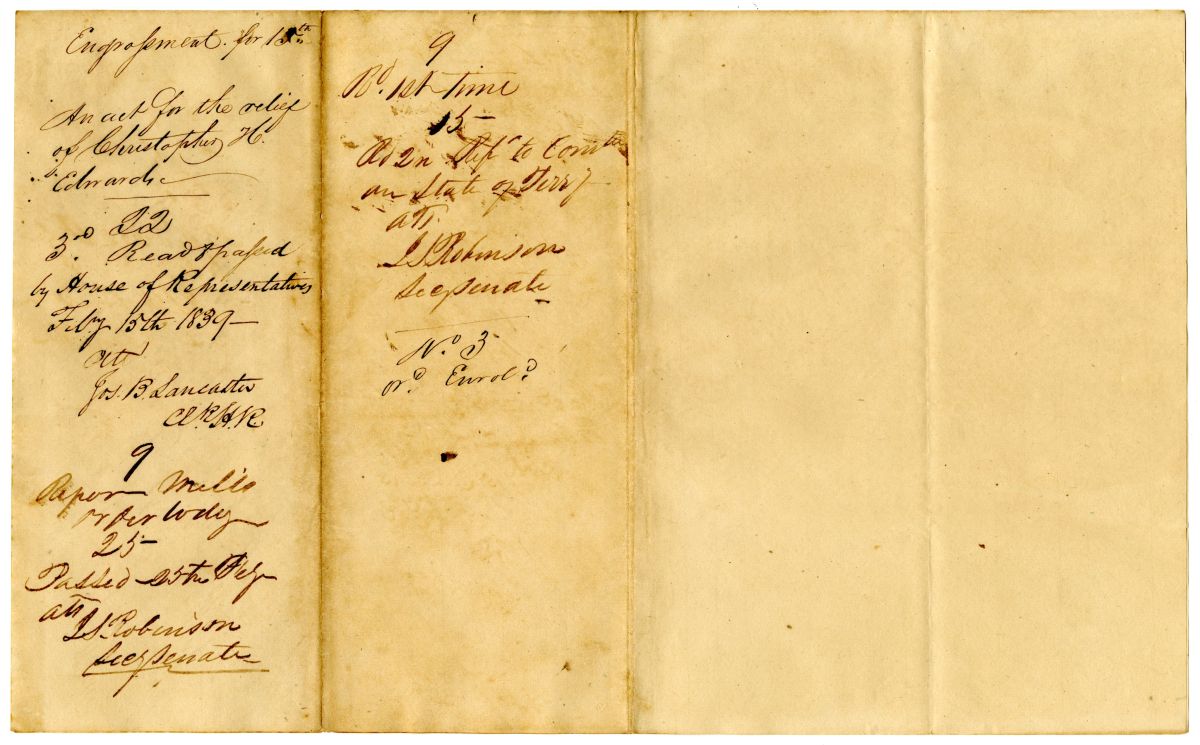 Engrossment for 15th
An act for the relief
of Christopher H.
Edwards
22
3rd. Read & passed
by House of Representatives
Feby 15th 1839
Att
Jos. B. Lancaster
Clk H.R.
9
25
Passed 25th Feby
att
J S. Robinson
Secy Senate
9
Rd. 1st Time
15
Rd 2n Refd to Comtee
on State of Terry
att.
J S Robinson
Secy Senate
No. 3
ord. Enrold.